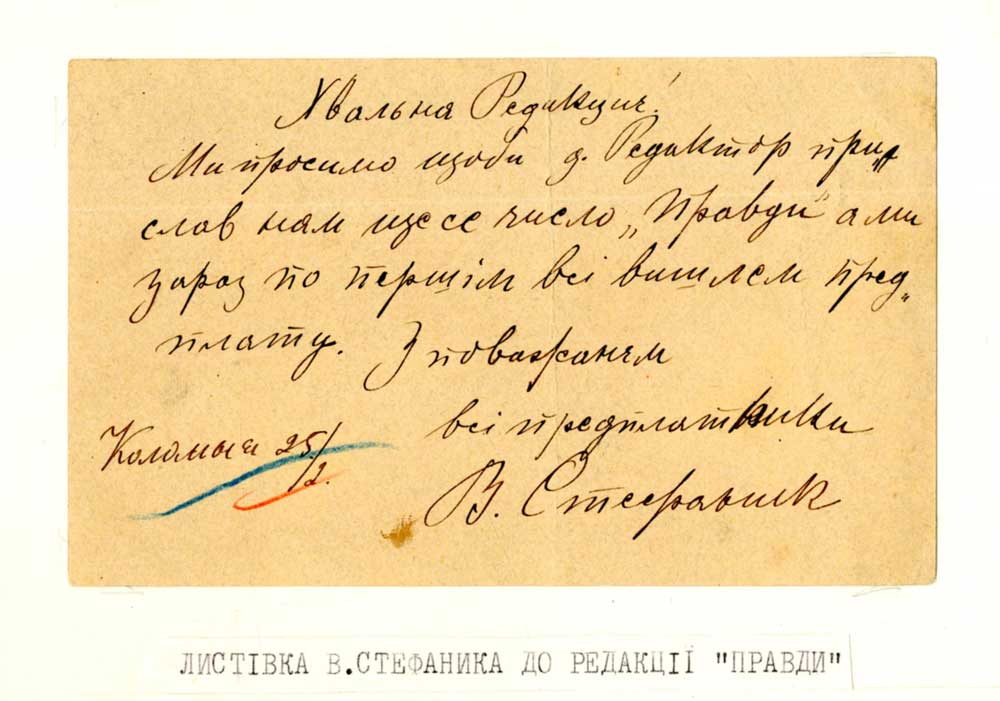 Хвальна Редакциє!
Ми просимо щоби д. Редактор при„
слав нам ще се число „Правди“ а ми
зараз по першім всі вишлем пред„
плату. З поважанєм
всі предплатники
Коломыя 25/2.
В. Стефаник
ЛИСТІВКА В.СТЕФАНИКА ДО РЕДАКЦІЇ "ПРАВДИ"